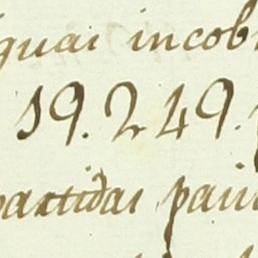 guas incob
19.249.
partidas para